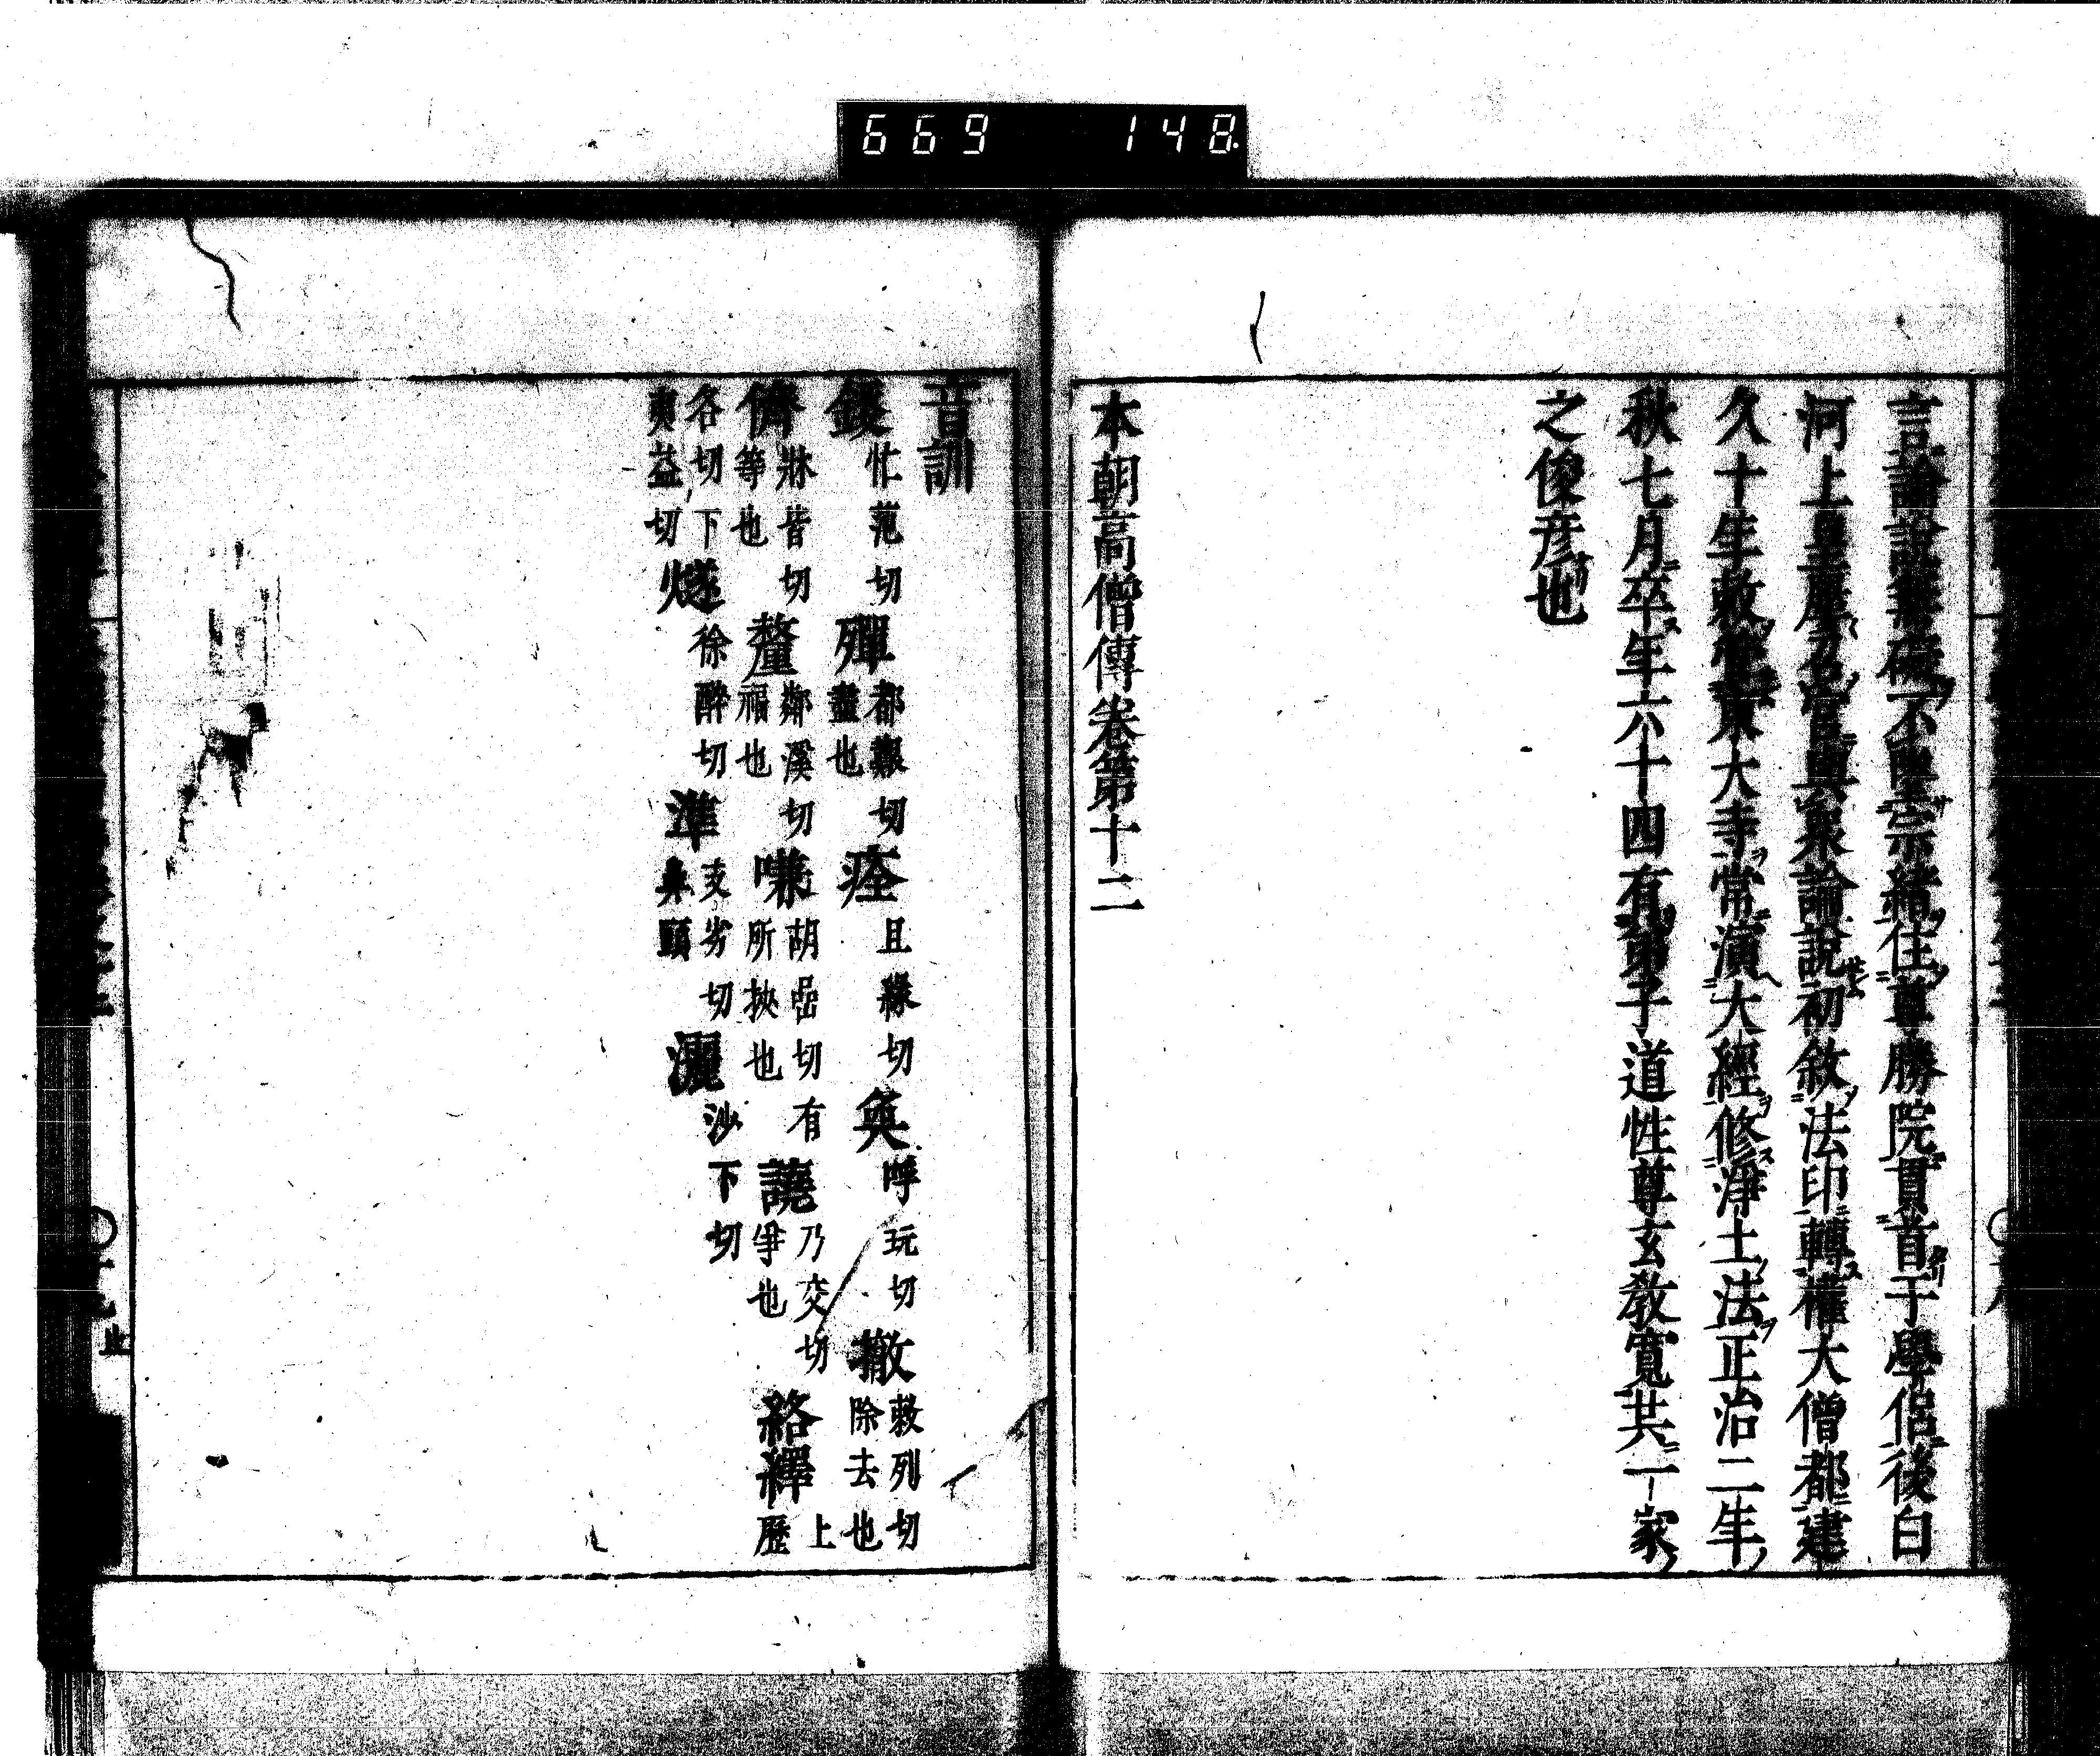 669 148
言論說無礙不墜宗緒住尊勝院貫首于學侶後白
河上皇廳召官與衆論說初敘法印轉權大僧都建
久十年敕管東大寺常演大經修淨土法正治二年
秋七月卒年六十四有弟子道性尊玄教寬共一家
之俊彥也
本朝高僧傳卷第十二
音訓
鋄 忙范切 殫 都艱切盡也 痊 且緣切 奐 呼玩切 撤 敕列切除去也
儕 牀皆切等也 釐 鄰溪切福也 嗛 胡嵒切有所挾也 譊 乃交切爭也 絡繹 上歷
各切下夷益切 燧 徐醉切 準 支劣切鼻頭 灑 沙下切